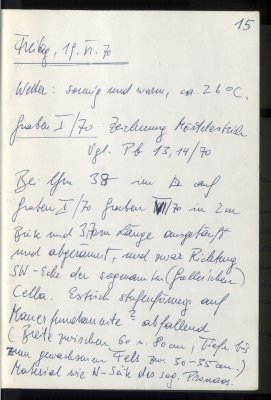 15
Freitag, 19. VI. 70
Wetter: sonnig und warm, ca. 26°C.
Graben I/70 Zeichnung
Vgl. Pb 13, 14/70
Bei lfm 38 im auf
Graben I/70 Graben VII/70 in 2m
Breite und Länge ausgehoben
und abgeräumt, und zwar Richtung
SW-Ecke der sogenannten
Cella. Estrich stufenförmig auf
Mauerfundamente? abfallend
(Breite zwischen 60 u. 80 cm, Tiefe bis
zum gewachsenen Fels zw. 30-35 cm.)
Material wie W-Seite des sog. Pronaos.